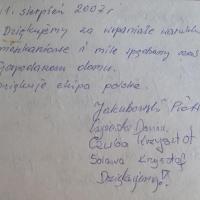 11. sierpień 2007 r
Dziękujemy za wspaniałe warunki
mieszkaniowe i mile spędzony czas
Gospodarzom domu.
Dziękuje ekipa polska.
Jakubowski Piotr
Danuta
Krzysztof
Krzysztof
Dziękujemy!